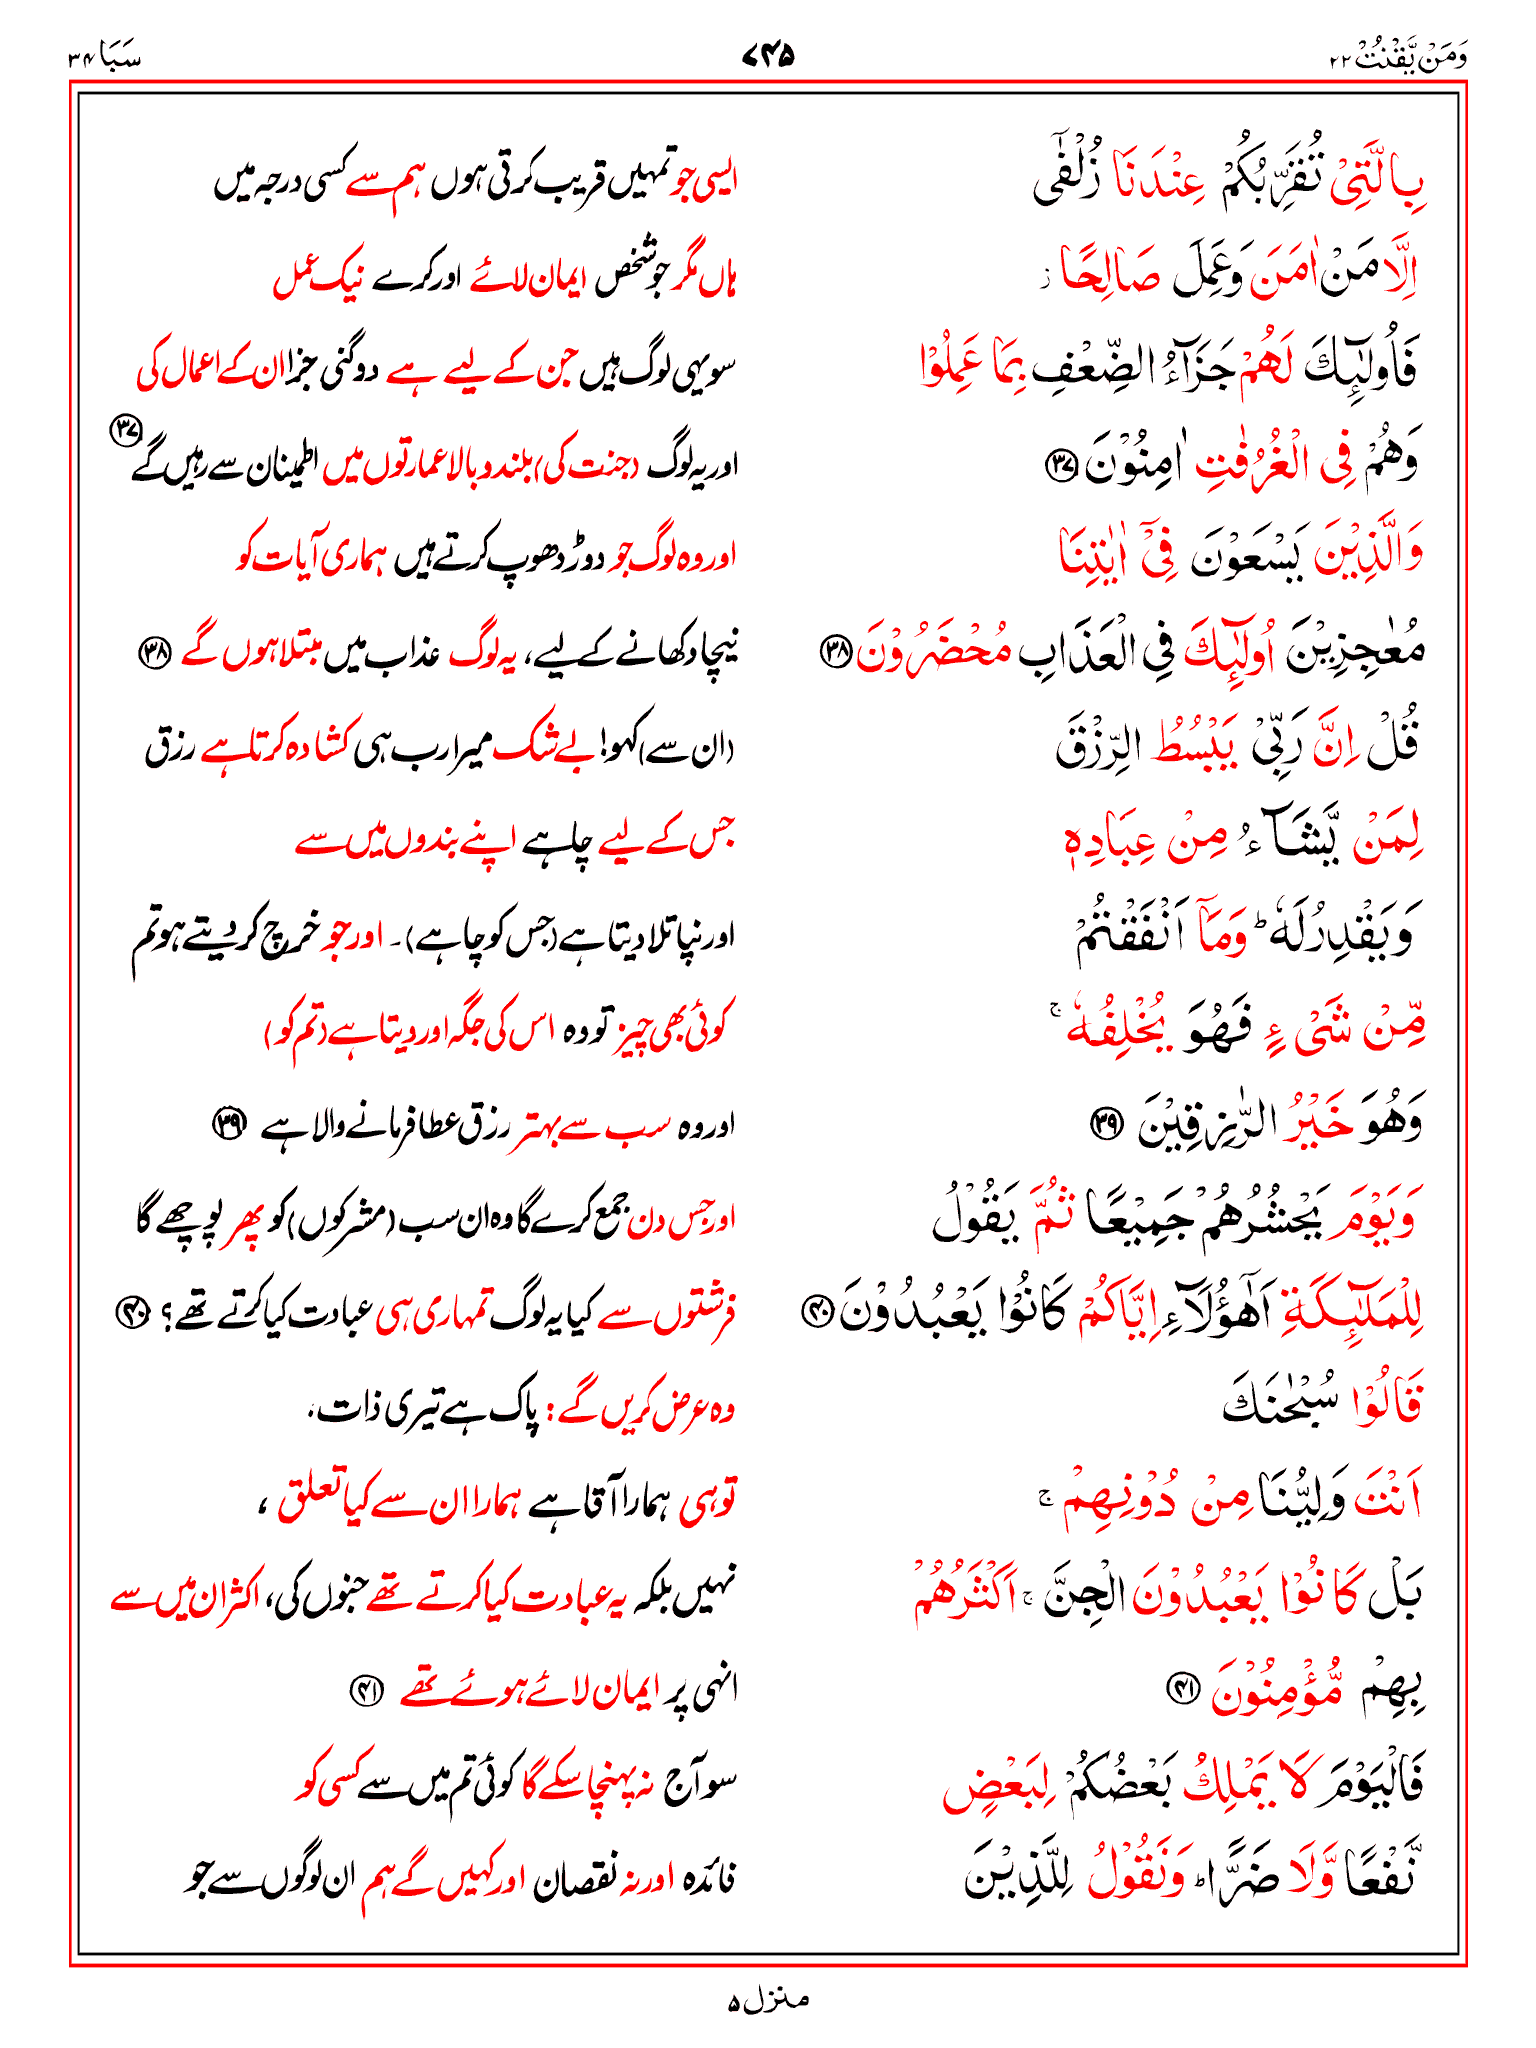 وَمَنْ يَّقْنُتْ ۲۲ ۷۴۵ سَبَا ۳۴
بِالَّتِیْ تُقَرِّبُكُمْ عِنْدَنَا زُلْفٰۤی ایسی جو تمہیں قریب کرتی ہوں ہم سے کسی درجہ میں
اِلَّا مَنْ اٰمَنَ وَعَمِلَ صَالِحًا ز ہاں مگر جو شخص ایمان لائے اور کرے نیک عمل
فَاُولٰٓىِٕكَ لَهُمْ جَزَآءُ الضِّعْفِ بِمَا عَمِلُوْا سو یہی لوگ ہیں جن کے لیے ہے دوگنی جزا ان کے اعمال کی
وَهُمْ فِی الْغُرُفٰتِ اٰمِنُوْنَ ﴿۳۷﴾ اور یہ لوگ (جنت کی) بلند و بالا عمارتوں میں اطمینان سے رہیں گے ﴿۳۷﴾
وَالَّذِیْنَ یَسْعَوْنَ فِیْۤ اٰیٰتِنَا اور وہ لوگ جو دوڑ دھوپ کرتے ہیں ہماری آیات کو
مُعٰجِزِیْنَ اُولٰٓىِٕكَ فِی الْعَذَابِ مُحْضَرُوْنَ ﴿۳۸﴾ نیچا دکھانے کے لیے، یہ لوگ عذاب میں مبتلا ہوں گے ﴿۳۸﴾
قُلْ اِنَّ رَبِّیْ یَبْسُطُ الرِّزْقَ (ان سے) کہو! بے شک میرا رب ہی کشادہ کرتا ہے رزق
لِمَنْ یَّشَآءُ مِنْ عِبَادِهٖ جس کے لیے چاہے اپنے بندوں میں سے
وَیَقْدِرُ لَهٗ ؕ وَمَاۤ اَنْفَقْتُمْ اور نپا تلا دیتا ہے (جس کو چاہے)۔ اور جو خرچ کر دیتے ہو تم
مِّنْ شَیْءٍ فَهُوَ یُخْلِفُهٗ ۚ کوئی بھی چیز تو وہ اس کی جگہ اور دیتا ہے (تم کو)
وَهُوَ خَیْرُ الرّٰزِقِیْنَ ﴿۳۹﴾ اور وہ سب سے بہتر رزق عطا فرمانے والا ہے ﴿۳۹﴾
وَیَوْمَ یَحْشُرُهُمْ جَمِیْعًا ثُمَّ یَقُوْلُ اور جس دن جمع کرے گا وہ ان سب (مشرکوں) کو پھر پوچھے گا
لِلْمَلٰٓىِٕكَةِ اَهٰۤؤُلَآءِ اِیَّاكُمْ كَانُوْا یَعْبُدُوْنَ ﴿۴۰﴾ فرشتوں سے کیا یہ لوگ تمہاری ہی عبادت کیا کرتے تھے؟ ﴿۴۰﴾
قَالُوْا سُبْحٰنَكَ وہ عرض کریں گے: پاک ہے تیری ذات،
اَنْتَ وَلِیُّنَا مِنْ دُوْنِهِمْ ۚ تو ہی ہمارا آقا ہے ہمارا ان سے کیا تعلق ،
بَلْ كَانُوْا یَعْبُدُوْنَ الْجِنَّ ۚ اَكْثَرُهُمْ نہیں بلکہ یہ عبادت کیا کرتے تھے جنوں کی، اکثر ان میں سے
بِهِمْ مُّؤْمِنُوْنَ ﴿۴۱﴾ انہی پر ایمان لائے ہوئے تھے ﴿۴۱﴾
فَالْیَوْمَ لَا یَمْلِكُ بَعْضُكُمْ لِبَعْضٍ سو آج نہ پہنچا سکے گا کوئی تم میں سے کسی کو
نَّفْعًا وَّلَا ضَرًّا ؕ وَنَقُوْلُ لِلَّذِیْنَ فائدہ اور نہ نقصان اور کہیں گے ہم ان لوگوں سے جو
منزل ۵